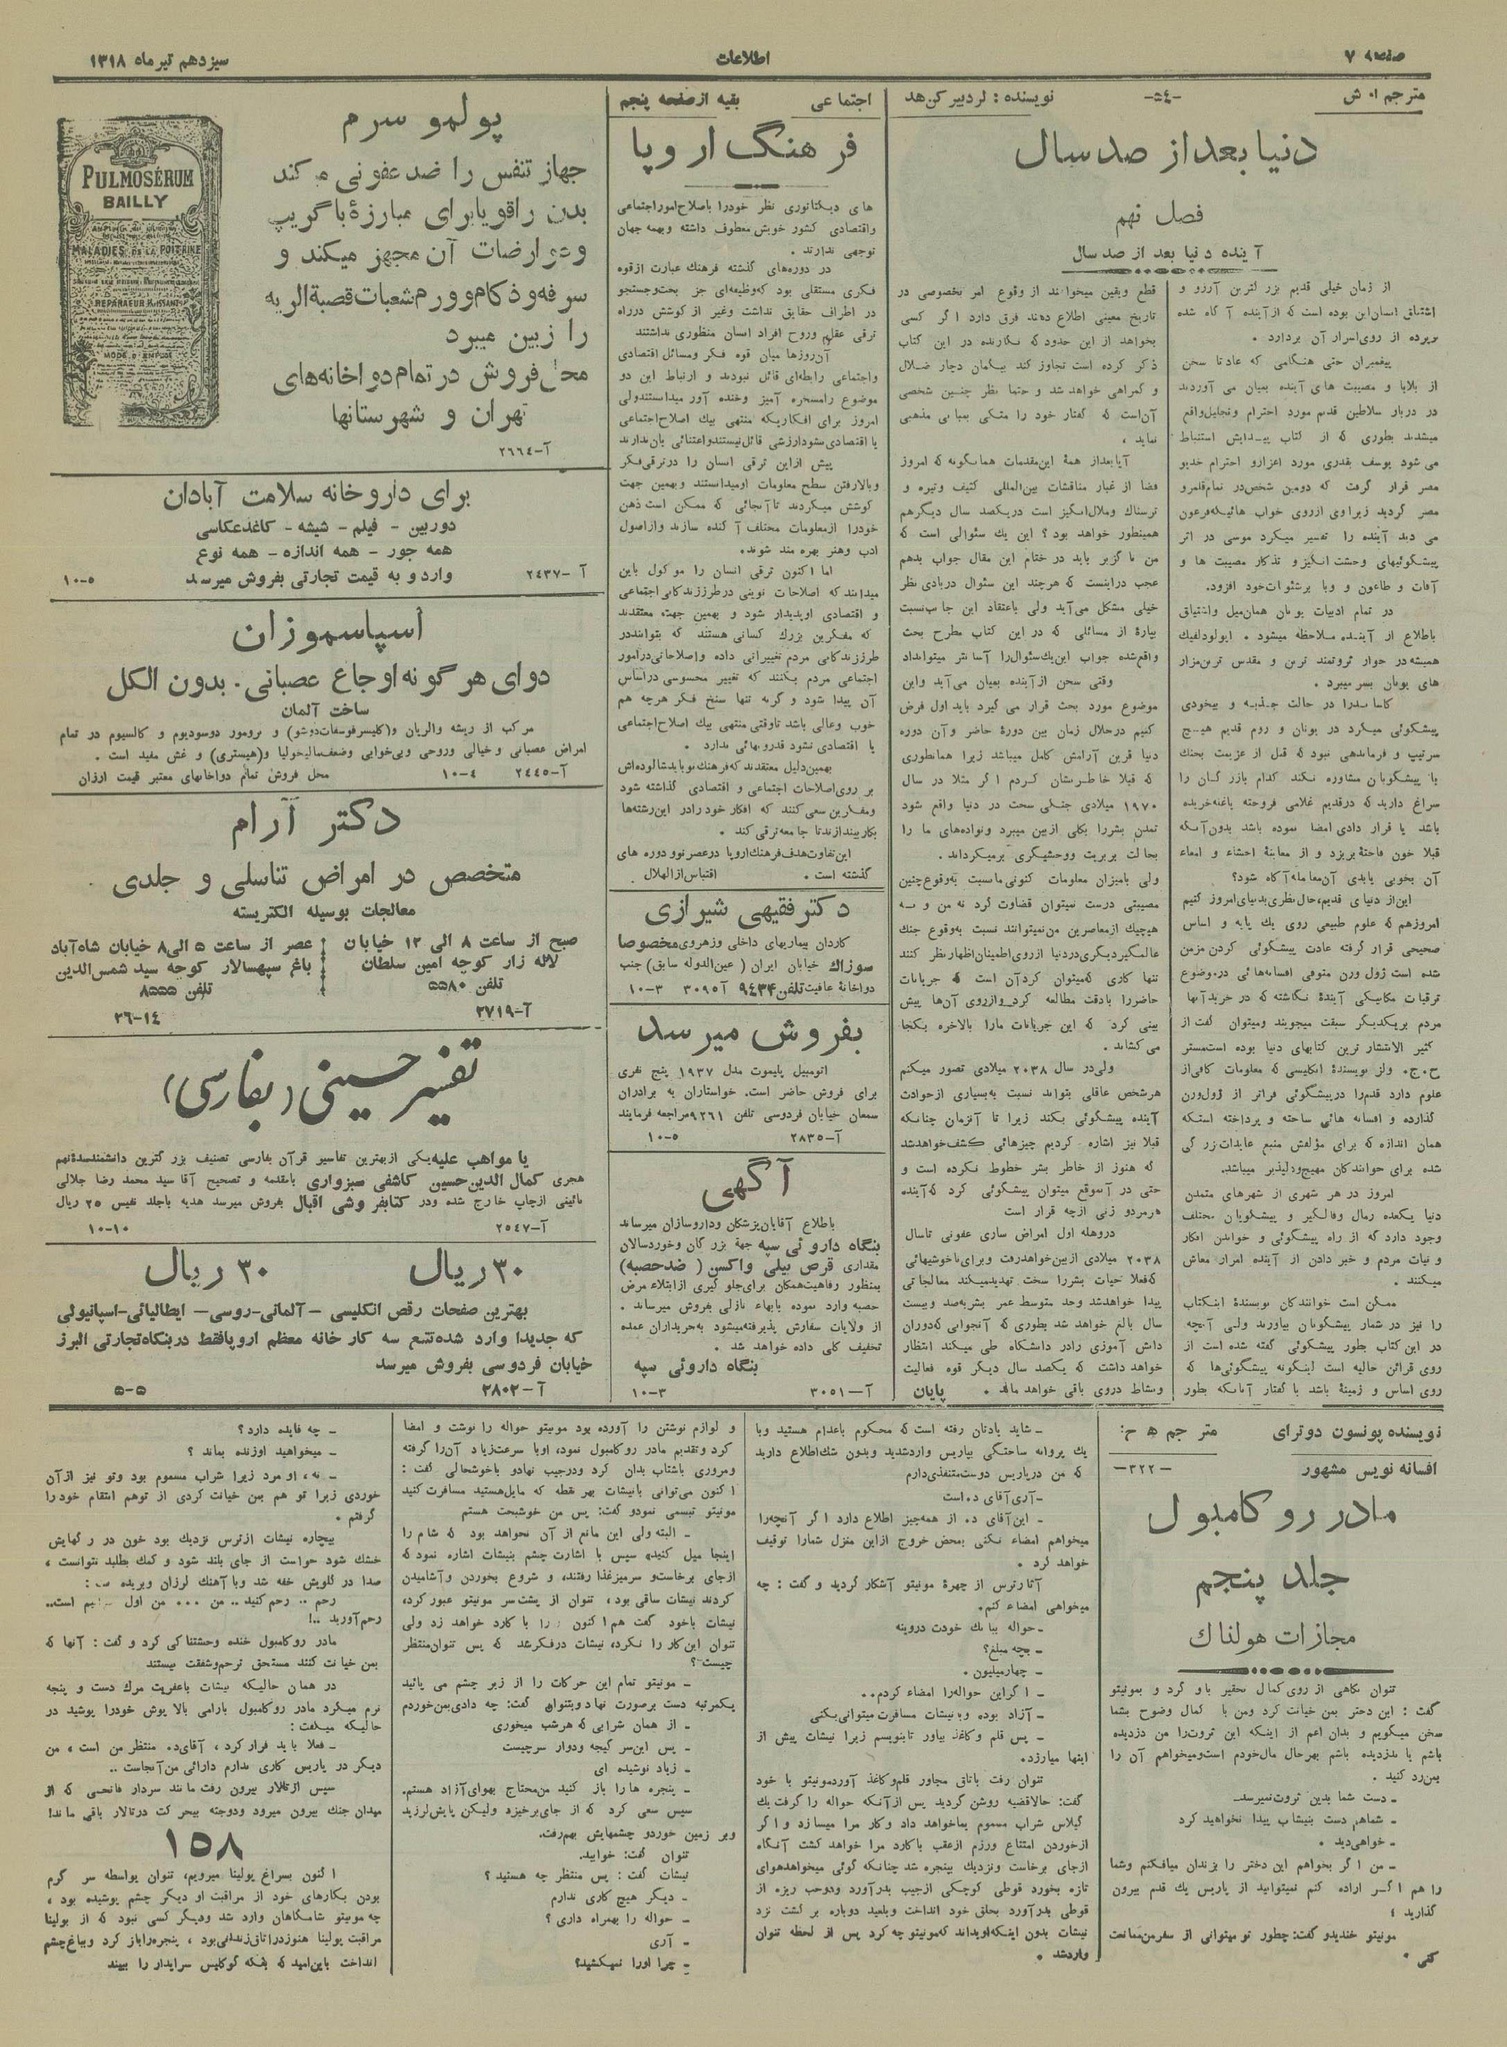 صفحه ۷
اطلاعات
سیزدهم تیر ماه ۱۳۱۸
مترجم ا. ش
-٥٤-
نویسنده : لرد بیر کن هد
دنیا بعد از صد سال
فصل نهم
آینده دنیا بعد از صد سال
از زمان خیلی قدیم بزرگترین آرزو و
اشتیاق انسان این بوده است که از آینده آگاه شده
و پرده از روی اسرار آن بردارد .
پیغمبران حتی هنگامی که عادتا سخن
از بلایا و مصیبت های آینده بمیان می آوردند
در دربار سلاطین قدیم مورد احترام و تجلیل واقع
میشدند بطوری که از کتاب پیدایش استنباط
می شود یوسف بقدری مورد اعزاز و احترام خدیو
مصر قرار گرفت که دومین شخص در تمام قلمرو
مصر گردید زیرا وی از روی خواب هائیکه فرعون
می دید آینده را تفسیر میکرد موسی در اثر
پیشگوئیهای وحشت انگیز و تذکار مصیبت ها و
آفات و طاعون و وبا بر شئونات خود افزود.
در تمام ادبیات یونان همان میل و اشتیاق
باطلاع از آینده ملاحظه میشود .
همیشه در جوار ثروتمند ترین و مقدس ترین مزار
های یونان بسر میبرد .
کاساندرا در حالت جذبه و بیخودی
پیشگوئی میکرد در یونان و روم قدیم هیچ
سرتیپ و فرماندهی نبود که قبل از عزیمت بجنگ
با پیشگویان مشاوره نکند کدام بازرگان را
سراغ دارید که در قدیم غلامی فروخته یا غله خریده
باشد یا قرار دادی امضا نموده باشد بدون آنکه
قبلا خون فاخته بریزد و از معاینهٔ احشاء و امعاء
آن بخوبی یا بدی آن معامله آگاه شود؟
این از دنیای قدیم، حال نظری بدنیای امروز کنیم
امروزهم که علوم طبیعی روی یک پایه و اساس
صحیحی قرار گرفته عادت پیشگوئی کردن مزمن
شده است ژول ورن متوفی افسانه هائی در موضوع
ترقیات مکانیکی آیندهٔ نگاشته که در خرید آنها
مردم بر یکدیگر سبقت میجویند و میتوان گفت از
کثیر الانتشار ترین کتابهای دنیا بوده است مستر
ح. ج. ولز نویسندهٔ انگلیسی که معلومات کافی از
علوم دارد قدم را در پیشگوئی فراتر از ژول ورن
گذارده و افسانه هائی ساخته و پرداخته است که
همان اندازه که برای مؤلفش منبع عایدات بزرگی
شده برای خوانندگان مهیج و دلپذیر میباشد.
امروز در هر شهری از شهرهای متمدن
دنیا یکعده رمال و فالگیر و پیشگویان مختلف
وجود دارد که از راه پیشگوئی و خواندن افکار
و نیات مردم و خبر دادن از آینده امرار معاش
میکنند .
ممکن است خوانندگان نویسندهٔ اینکتاب
را نیز در شمار پیشگویان بیاورند ولی آنچه
در این کتاب بطور پیشگوئی گفته شده است از
روی قرائن حالیه است اینگونه پیشگوئی ها که
روی اساس و زمینهٔ باشد با گفتار آنانکه بطور
قطع و یقین میخوانند از وقوع امر بخصوصی در
تاریخ معینی اطلاع دهند فرق دارد اگر کسی
بخواهد از این حدود که نگارنده در این کتاب
ذکر کرده است تجاوز کند بیگمان دچار ضلال
و گمراهی خواهد شد و حتما نظر چنین شخصی
آن است که گفتار خود را متکی بمبانی مذهبی
نماید .
آیا بعد از همهٔ این مقدمات همانگونه که امروز
فضا از غبار مناقشات بین المللی کثیف و تیره و
ترسناک و ملال انگیز است در یکصد سال دیگر هم
همینطور خواهد بود ؟ این یک سئوالی است که
من ناگزیر باید در ختام این مقال جواب بدهم
عجب در اینست که هر چند این سئوال در بادی نظر
خیلی مشکل می آید ولی باعتقاد این جانب نسبت
بپارهٔ از مسائلی که در این کتاب مطرح بحث
واقع شده جواب این یک سئوال را آسانتر میتوانداد
وقتی سخن از آینده بمیان می آید و این
موضوع مورد بحث قرار می گیرد باید اول فرض
کنیم در خلال زمان بین دورهٔ حاضر و آن دوره
دنیا قرین آرامش کامل میباشد زیرا همانطوری
که قبلا خاطر نشان کردم اگر مثلا در سال
۱۹۷۰ میلادی جنگی سخت در دنیا واقع شود
تمدن بشر را بکلی از بین میبرد و نواده های ما را
بحالت بربریت و وحشیگری بر میگرداند.
ولی بامیزان معلومات کنونی ما نسبت به وقوع چنین
مصیبتی درست نمیتوان قضاوت کرد نه من و نه
هیچیک از معاصرین من نمیتوانند نسبت به وقوع جنک
عالمگیر دیگری در دنیا از روی اطمینان اظهار نظر کنند
تنها کاری که میتوان کرد آن است که جریانات
حاضر را بادقت مطالعه کرد و از روی آن ها پیش
بینی کرد که این جریانات ما را بالاخره بکجا
می کشاند .
ولی در سال ۲۰۳۸ میلادی تصور میکنم
هر شخص عاقلی بتواند نسبت به بسیاری از حوادث
آینده پیشگوئی بکند زیرا تا آنزمان چنانکه
قبلا نیز اشاره کردیم چیزهائی کشف خواهد شد
که هنوز از خاطر بشر خطور نکرده است و
حتی در آنموقع میتوان پیشگوئی کرد که آینده
هر مرد و زنی از چه قرار است
در وهله اول امراض ساری عفونی تا سال
۲۰۳۸ میلادی از بین خواهد رفت و برای ناخوشیهائی
که فعلا حیات بشر را سخت تهدید میکند معالجاتی
پیدا خواهد شد وحد متوسط عمر بشر به صد و بیست
سال بالغ خواهد شد بطوری که آنجوانی که دوران
دانش آموزی را در دانشگاه طی میکند انتظار
خواهد داشت که یکصد سال دیگر قوه فعالیت
و نشاط در وی باقی خواهد ماند . پایان
اجتماعی
بقیه از صفحه پنجم
فرهنگ اروپا
های دیکتاتوری نظر خود را باصلاح امور اجتماعی
و اقتصادی کشور خویش معطوف داشته و بهمه جهان
توجهی ندارند .
در دوره های گذشته فرهنگ عبارت از قوه
فکری مستقلی بود که وظیفه ای جز بحث و جستجو
در اطراف حقایق نداشت و غیر از کوشش در راه
ترقی عقل و روح افراد انسان منظوری نداشتند
آن روزها میان قوه فکر و مسائل اقتصادی
و اجتماعی رابطه ای قائل نبودند و ارتباط این دو
موضوع را مسخره آمیز و خنده آور میدانستند ولی
امروز برای افکاریکه منتهی بیک اصلاح اجتماعی
یا اقتصادی نشود ارزشی قائل نیستند و اعتنائی بان ندارند
پیش از این ترقی انسان را در ترقی فکر
و بالارفتن سطح معلومات او میدانستند و بهمین جهت
کوشش میکردند تا آنجائی که ممکن است ذهن
خود را از معلومات مختلف آکنده سازند و از اصول
ادب و هنر بهره مند شوند.
اما اکنون ترقی انسان را موکول باین
میدانند که اصلاحات نوینی در طرز زندگانی اجتماعی
و اقتصادی او پدیدار شود و بهمین جهت معتقدند
که متفکرین بزرگ کسانی هستند که بتوانند در
طرز زندگانی مردم تغییراتی داده و اصلاحاتی در امور
اجتماعی مردم بکنند که تغییر محسوسی در اساس
آن پیدا شود و گرنه تنها سنخ فکر هر چه هم
خوب و عالی باشد تا وقتی منتهی بیک اصلاح اجتماعی
یا اقتصادی نشود قدر و بهائی ندارد .
بهمین دلیل معتقدند که فرهنگ نو باید شالوده اش
بر روی اصلاحات اجتماعی و اقتصادی گذاشته شود
و متفکرین سعی کنند که افکار خود را در این رشته ها
بکار بیندازند تا جامعه ترقی کند .
این تفاوت هدف فرهنگ اروپا در عصر نو و دوره های
گذشته است . اقتباس از الهلال
دکتر فقیهی شیرازی
کاردان بیماریهای داخلی و زهروی مخصوصا
سوزاک خیابان ایران ( عین الدوله سابق) جنب
دواخانهٔ عافیت تلفن ۹۴۳۴ آ۳۰۹۵ ۳-۱۰
بفروش میرسد
اتومبیل پلیموت مدل ۱۹۳۷ پنج نفری
برای فروش حاضر است. خواستاران به برادران
سمعان خیابان فردوسی تلفن ۹۲۶۱ مراجعه فرمایند
آ-۲۸۳۵ ۵-۱۰
آگهی
باطلاع آقایان پزشکان و داروسازان میرساند
بنگاه داروئی سپه جهة بزرگان و خوردسالان
مقداری قرص بیلی واکسن ( ضد حصبه)
بمنظور رفاهیت همکان برای جلوگیری از ابتلاء مرض
حصبه وارد نموده با بهاء نازلی بفروش میرساند .
از ولایات سفارش پذیرفته میشود به خریداران عمده
تخفیف کلی داده خواهد شد .
بنگاه داروئی سپه
آ-۳۰۵۱ ۳-۱۰
پولمو سرم
جهاز تنفس را ضد عفونی میکند
بدن را قویا برای مبارزهٔ با گریپ
و عوارضات آن مجهز میکند و
سرفه و ذکام و ورم شعبات قصبة الریه
را زبین میبرد
محل فروش در تمام دواخانه های
تهران و شهرستانها
آ-۲۶۶٤
PULMOSÉRUM
BAILLY
MALADIES DE LA POITRINE
RÉPARATEUR PUISSANT
MODE D'EMPLOI
برای داروخانه سلامت آبادان
دوربین - فیلم - شیشه - کاغذ عکاسی
همه جور - همه اندازه - همه نوع
وارد و به قیمت تجارتی بفروش میرسد
آ -۲٤۳۷ ۵-۱۰
اسپاسموزان
دوای هر گونه اوجاع عصبانی . بدون الکل
ساخت آلمان
مرکب از ریشه والریان و (کلیسرفوسفات دوشو) و برومور دوسودیوم و کالسیوم در تمام
امراض عصبانی و خیالی و روحی و بی خوابی وضعف مالیخولیا و (هیستری) و غش مفید است .
آ-۲٤٤۵ ٤-۱۰ محل فروش تمام دواخانهای معتبر قیمت ارزان
دکتر آرام
متخصص در امراض تناسلی و جلدی .
معالجات بوسیله الکتریسته
صبح از ساعت ۸ الی ۱۲ خیابان
لاله زار کوچه امین سلطان
تلفن ۵۵۸۰
عصر از ساعت ۵ الی ۸ خیابان شاه آباد
باغ سپهسالار کوچه سید شمس الدین
تلفن ۸۵۵۵
آ-۲۷۱۹ ۱٤-۲۶
تفسیر حسینی (بفارسی)
یا مواهب علیه یکی از بهترین تفاسیر قرآن بفارسی تصنیف بزرگترین دانشمند سدهٔ نهم
هجری کمال الدین حسین کاشفی سبزواری با مقدمه و تصحیح آقا سید محمد رضا جلالی
نائینی از چاپ خارج شده و در کتابفروشی اقبال بفروش میرسد هدیه با جلد نفیس ۲۵ ریال
آ-۲۵٤۷ ۱۰-۱۰
۳۰ ریال
۳۰ ریال
بهترین صفحات رقص انگلیسی - آلمانی - روسی - ایطالیائی - اسپانیولی
که جدیدا وارد شده نتیع سه کارخانه معظم اروپا فقط در بنگاه تجارتی البرز
خیابان فردوسی بفروش میرسد
آ-۲۸۰۲ ۵-۵
نویسنده پونسون دوترای
مترجم ه ح:
افسانه نویس مشهور
-۳۲۲-
مادر روکامبول
جلد پنجم
مجازات هولناک
تنوان نگاهی از روی کمال تحقیر باو کرد و بمونیتو
گفت : این دختر بمن خیانت کرد ومن با کمال وضوح بشما
سخن میگویم و بدان اعم از اینکه این ثروت را من دزدیده
باشم یا ندزدیده باشم بهر حال مال خودم است و میخواهم آن را
بمن رد کنید .
- دست شما بدین ثروت نمیرسد..
- شما هم دست بنیشاب پیدا نخواهید کرد
- خواهی دید .
- من اگر بخواهم این دختر را بزندان میافکنم و شما
را هم اگر اراده کنم نمیتوانید از پاریس یک قدم بیرون
گذارید ؛
مونیتو خندید و گفت: چطور تو میتوانی از سفر من ممانعت
کنی .
- شاید یادتان رفته است که محکوم باعدام هستید و با
یک پروانه ساختگی بپاریس وارد شدید و بدون شک اطلاع دارید
که من در پاریس دوست متنفذی دارم
- آری آقای د. است
- این آقای د. از همه چیز اطلاع دارد اگر آنچه را
میخواهم امضاء نکنی بمحض خروج از این منزل شما را توقیف
خواهد کرد .
آثار ترس از چهرهٔ مونیتو آشکار گردید و گفت : چه
میخواهی امضاء کنم.
- حواله ببانک خودت در وینه
- بچه مبلغ؟
- چهار میلیون .
- اگر این حواله را امضاء کردم..
- آزاد بوده و با نیشات مسافرت میتوانی بکنی
- پس قلم و کاغذ بیاور تا بنویسم زیرا نیشات بیش از
اینها میارزد.
تنوان رفت با تاق مجاور قلم و کاغذ آورد مونیتو با خود
گفت: حالا قضیه روشن گردید پس از آنکه حواله را گرفت یک
گیلاس شراب مسموم بما خواهد داد و کار مرا میسازد و اگر
از خوردن امتناع ورزم از عقب با کارد مرا خواهد کشت آنگاه
از جای برخاست و نزدیک بپنجره شد چنانکه گوئی میخواهد هوای
تازه بخورد قوطی کوچکی از جیب بدر آورد و دو حب ریزه از
قوطی بدر آورد بحلق خود انداخت و بلعید دوباره برگشت نزد
نیشات بدون اینکه او بداند که مونیتو چه کرد پس از لحظه تنوان
وارد شد .
و لوازم نوشتن را آورده بود مونیتو حواله را نوشت و امضا
کرد و تقدیم مادر روکامبول نمود، او با سرعت زیاد آن را گرفته
و مروری باشتاب بدان کرد و در جیب نهاد و با خوشحالی گفت :
اکنون می توانی با نیشات بهر نقطه که مایل هستید مسافرت کنید
مونیتو تبسمی نمود و گفت: پس من خوشبخت هستم
- البته ولی این مانع از آن نخواهد بود که شام را
اینجا میل کنید، سپس با اشارت چشم بنیشات اشاره نمود که
از جای برخاست و سر میز غذا رفتند، و شروع بخوردن و آشامیدن
کردند نیشات ساقی بود ، تنوان از پشت سر مونیتو عبور کرد،
نیشات باخود گفت هم اکنون او را با کارد خواهد زد ولی
تنوان این کار را نکرد، نیشات در فکر شد که پس تنوان منتظر
چیست ؟
- مونیتو تمام این حرکات را از زیر چشم می پائید
یکمرتبه دست بر صورت نهاد و بتنوان گفت: چه دادی بمن خوردم
- از همان شرابی که هر شب میخوری
- پس این سر گیجه و دوار سر چیست
- زیاد نوشیده ای
- پنجره ها را باز کنید من محتاج بهوای آزاد هستم.
سپس سعی کرد که از جای برخیزد ولیکن پایش لرزید
و بر زمین خورد و چشمهایش بهم رفت.
تنوان گفت: خوابید.
نیشات گفت : پس منتظر چه هستید ؟
- دیگر هیچ کاری ندارم
- حواله را بهمراه داری ؟
- آری
- چرا او را نمیکشید؟
- چه فایده دارد ؟
- میخواهید او زنده بماند ؟
- نه، او مرد زیرا شراب مسموم بود و تو نیز از آن
خوردی زیرا تو هم بمن خیانت کردی از تو هم انتقام خود را
گرفتم .
بیچاره نیشات از ترس نزدیک بود خون در رگهایش
خشک شود خواست از جای بلند شود و کمک بطلبد نتوانست ،
صدا در گلویش خفه شد و با آهنگ لرزان و بریده :
رحم .. رحم کنید .. من ... من اول است..
رحم آورید ..!
مادر روکامبول خنده وحشتناکی کرد و گفت : آنها که
بمن خیانت کنند مستحق ترحم و شفقت نیستند
در همان حالیکه نیشات با عفریت مرگ دست و پنجه
نرم میکرد مادر روکامبول بارامی بالا پوش خود را پوشید در
حالیکه میگفت :
- فعلا باید فرار کرد ، آقای د. منتظر من است ، من
دیگر در پاریس کاری ندارم دارائی من آنجاست ..
سپس از تالار بیرون رفت مانند سردار فاتحی که از
میدان جنگ بیرون میرود و دو جثه بیحرکت در تالار باقی ماند!
۱۵۸
اکنون بسراغ پولینا میرویم، تنوان بواسطه سر گرم
بودن بکارهای خود از مراقبت او دیگر چشم پوشیده بود ،
چه مونیتو شامگاهان وارد شد و دیگر کسی نبود که از پولینا
مراقبت پولینا هنوز در اتاق زندانی بود ، پنجره را باز کرد و بباغ چشم
انداخت باین امید که بلکه گوکلیس سرایدار را ببیند